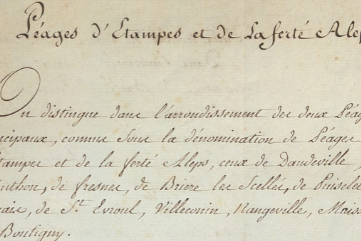 Péages d'Etampes et de Laferté Alep
On distingue dans l'arrondissement des deux Péag
cipaux, connus sous la dénomination de Péages
tampes et de la ferté Aleps, ceux de Dandeville
uthon, de fresne, de Briere les Scellés, de Puiselet
rais, de St. Evroul, Villeconin, Mangeville, Mais
Boutigny.